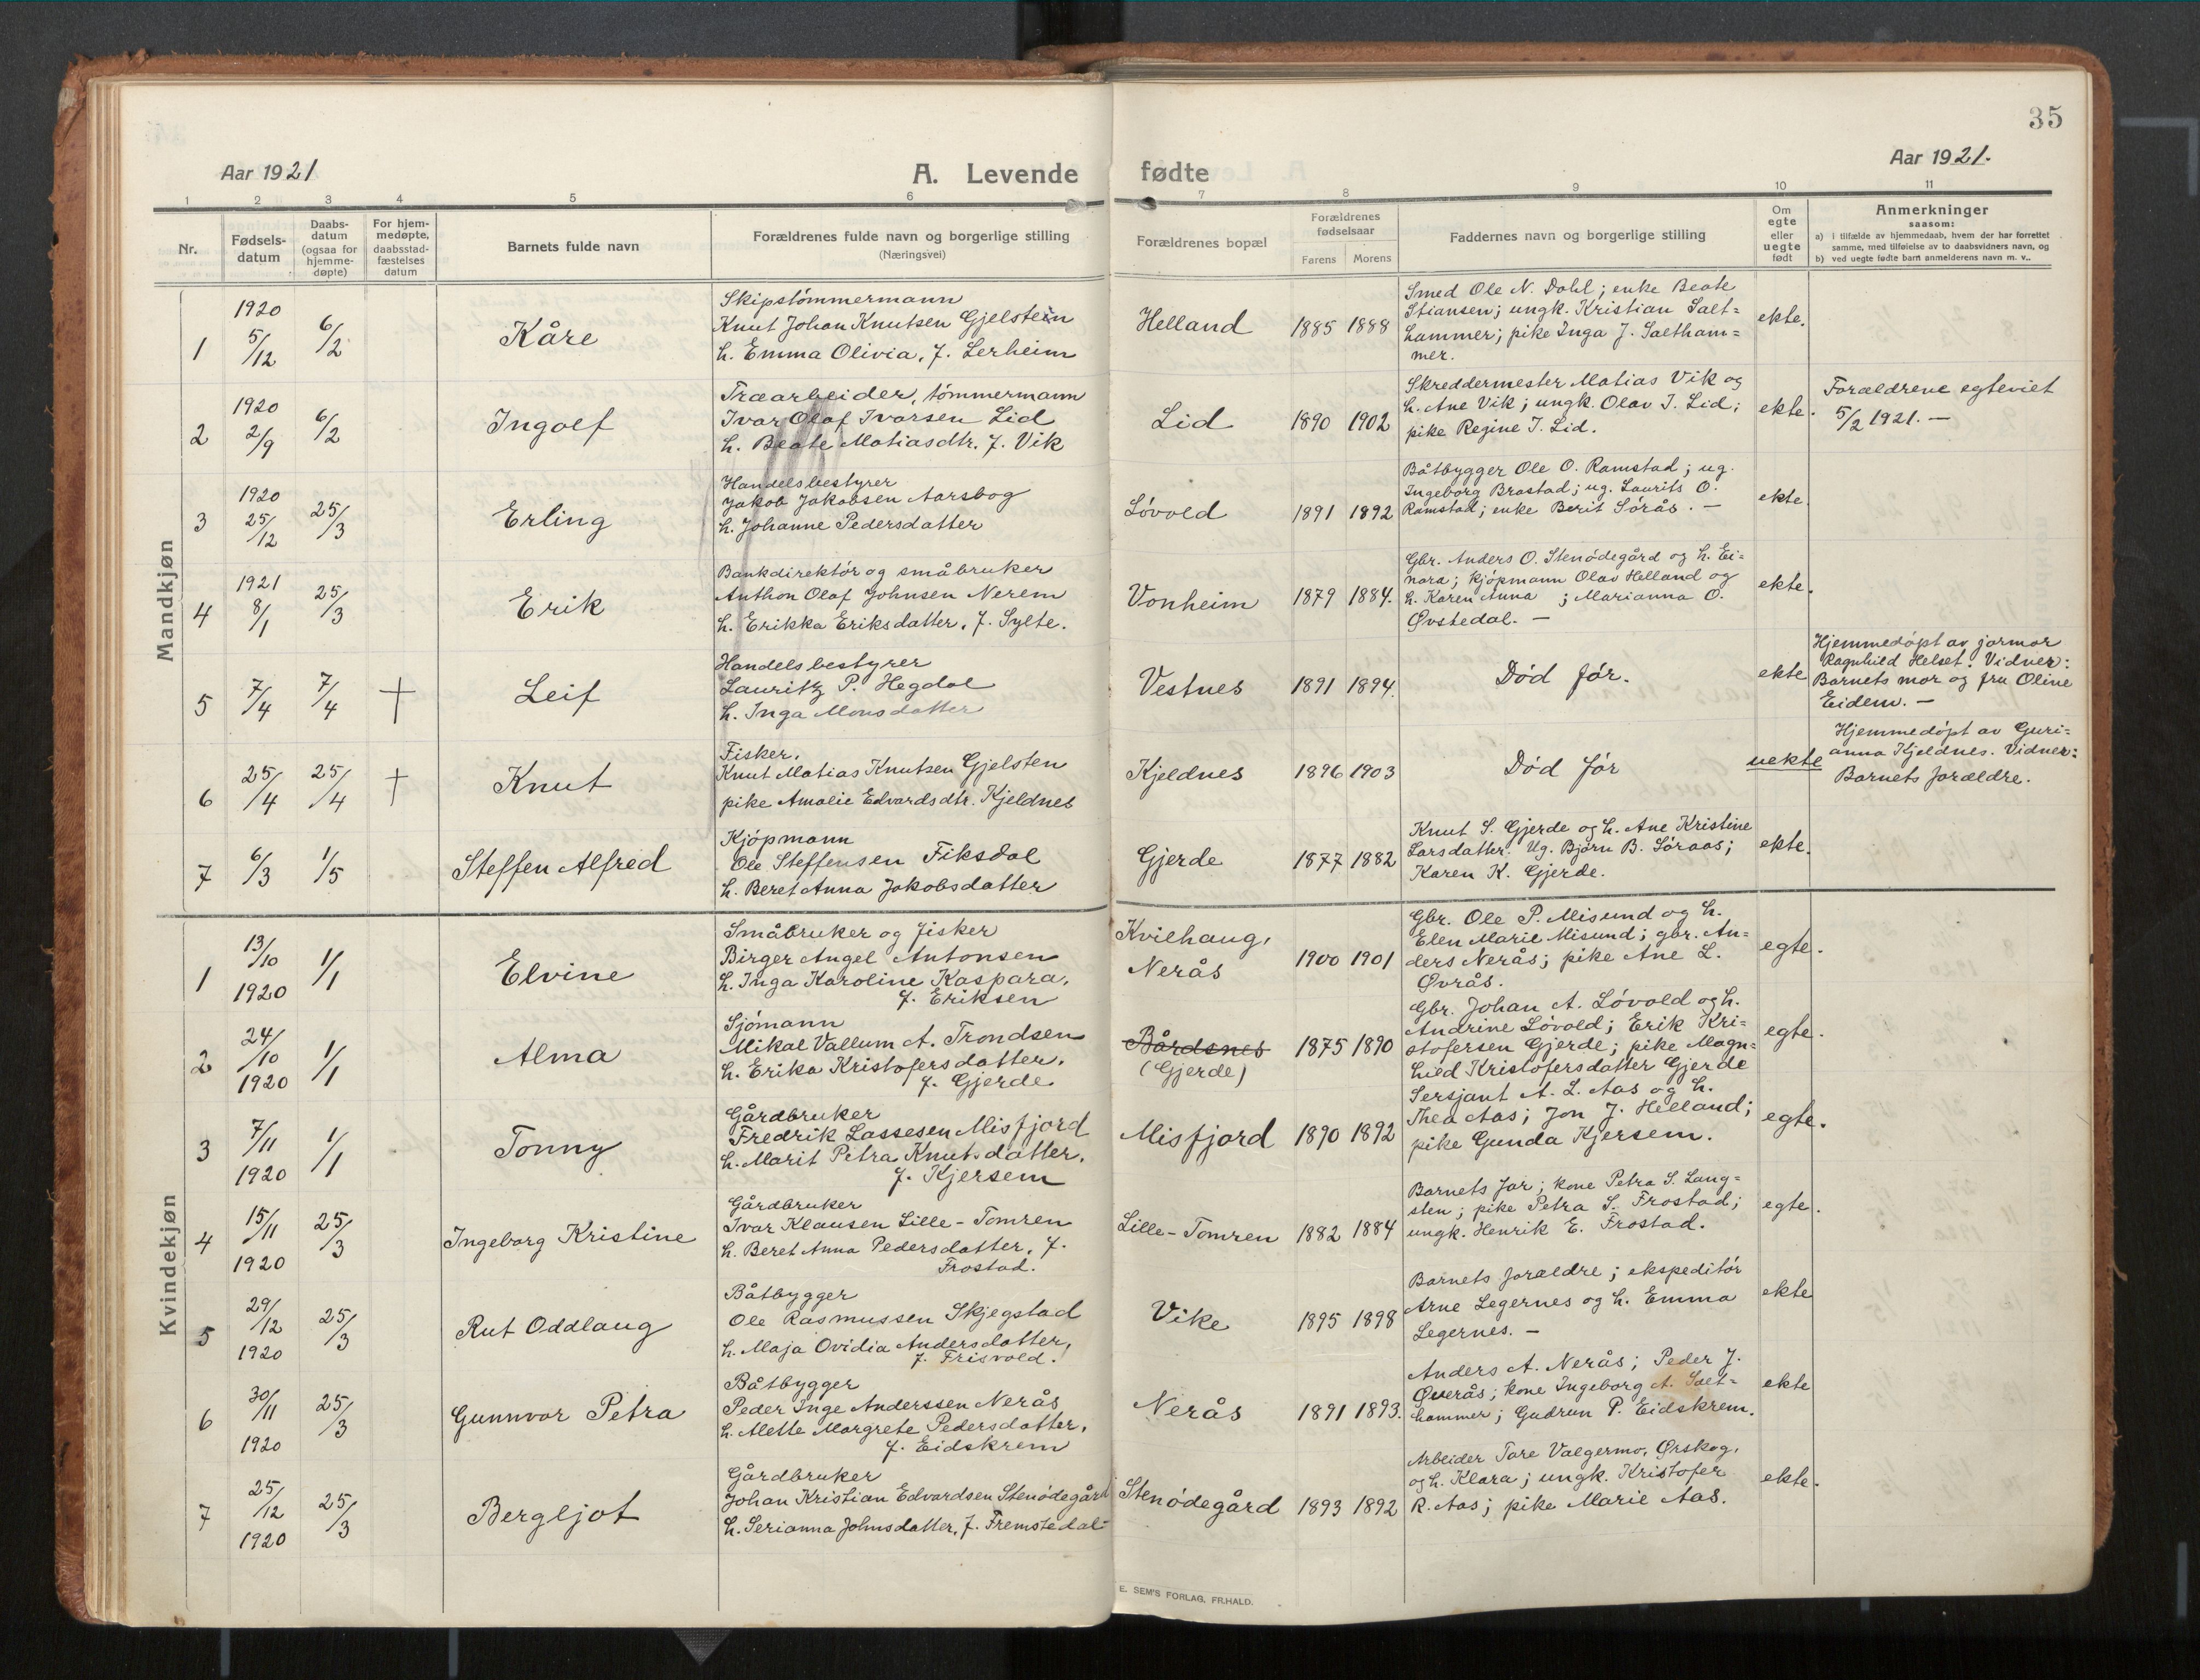 35
Aar 1921
A. Levende fødte
Aar 1921.
1 2 3 4 5 6 7 8 9 10 11
Nr.
Fødsels-
datum
Daabs-
datum
(ogsaa for
hjemme-
døpte)
For hjem-
medøpte,
daabsstad-
fæstelses
datum
Barnets fulde navn
Forældrenes fulde navn og borgerlige stilling
(Næringsvei)
Forældrenes bopæl
Forældrenes
fødselsaar
Farens Morens
Faddernes navn og borgerlige stilling
Om
egte
eller
uegte
født
Anmerkninger
saasom:
a) i tilfælde av hjemmedaab, hvem der har forrettet
samme, med tilføielse av to daabsvidners navn, og
b) ved uegte fødte barn anmelderens navn m. v..
Mandkjøn
1
1920
5/12
6/2
Kåre
Skipstømmermann
Knut Johan Knutsen Gjelstein
h. Emma Olivia, f. Lerheim
Helland
1885 1888
Smed Ole N. Dahl; enke Beate
Stiansen; ungk. Kristian Salt-
hammer; pike Inga J. Saltham-
mer.
ekte.
2
1920
2/9
6/2
Ingolf
Træarbeider, tømmermann
Ivar Olaf Ivarsen Lid
h. Beate Matiasdtr. f. Vik
Lid
1890 1902
Skreddermester Matias Vik og
h. Ane Vik; ungk. Olav I. Lid;
pike Regine I. Lid.
ekte.
Forældrene egteviet
5/2 1921. —
3
1920
25/12
25/3
Erling
Handelsbestyrer
Jakob Jakobsen Aarsbog
h. Johanne Pedersdatter
Løvold
1891 1892
Båtbygger Ole O. Ramstad; ug.
Ingeborg Brastad; ug. Laurits O.
Ramstad; enke Berit Sørås. —
ekte.
4
1921
8/1
25/3
Erik
Bankdirektør og småbruker
Anthon Olaf Johnsen Nerem
h. Erikka Eriksdatter, f. Sylte.
Vonheim
1879 1884.
Gbr. Anders O. Stenødegård og h. Ei-
nara; kjøpmann Olav Helland og
h. Karen Anna ; Marianna O.
Øvstedal. —
ekte.
5
7/4
7/4
†
Leif
Handelsbestyrer
Lauritz P. Hegdal
h. Inga Monsdatter
Vestnes
1891 1894.
Død før.
ekte
Hjemmedøpt av jormor
Ragnhild Helset. Vidner:
Barnets mor og fru Oline
Eidem. —
6
25/4
25/4
†
Knut
Fisker,
Knut Matias Knutsen Gjelsten
pike Amalie Edvardsdtr. Kjeldnes
Kjeldnes
1896 1903
Død før
uekte
Hjemmedøpt av Guri-
anna Kjeldnes. Vidner:
Barnets forældre.
7
6/3
1/5
Steffen Alfred
Kjøpmann
Ole Steffensen Fiksdal
h. Beret Anna Jakobsdatter
Gjerde
1877 1882
Knut S. Gjerde og h. Ane Kristine
Larsdatter. Ug. Bjørn B. Søraas;
Karen K. Gjerde.
ekte.
Kvindekjøn
1
13/10
1920
1/1
Elvine
Småbruker og fisker
Birger Angel Antonsen
h. Inga Karoline Kaspara,
f. Eriksen
Kvilhaug,
Nerås
1900 1901
Gbr. Ole P. Misund og h.
Elen Marie Misund; gbr. An-
ders Nerås; pike Ane L.
Øvrås.
egte.
2
24/10
1920
1/1
Alma
Sjømann
Mikal Vallum A. Trondsen
h. Erika Kristofersdatter,
f. Gjerde
Bårdsnes
(Gjerde)
1875 1890
Gbr. Johan A. Løvold og h.
Andrine Løvold; Erik Kri-
stofersen Gjerde; pike Magn-
hild Kristofersdatter Gjerde
egte.
3
7/11
1920
1/1
Tonny
Gårdbruker
Fredrik Lassesen Misfjord
h. Marit Petra Knutsdatter,
f. Kjersem
Misfjord
1890 1892
Sersjant A. L. Aas og h.
Thea Aas; Jon J. Helland;
pike Gunda Kjersem.
egte.
4
15/11
1920
25/3
Ingeborg Kristine
Gårdbruker
Ivar Klausen Lille-Tomren
h. Beret Anna Pedersdatter, f.
Frostad.
Lille-Tomren
1882 1884
Barnets far; kone Petra S. Lang-
sten; pike Petra S. Frostad;
ungk. Henrik E. Frostad.
egte.
5
29/12
1920
25/3
Rut Oddlaug
Båtbygger
Ole Rasmussen Skjegstad
h. Maja Ovidia Andersdatter,
f. Frisvold.
Vike
1895 1898
Barnets forældre; ekspeditør
Arne Legernes og h. Emma
Legernes. —
ekte
6
30/11
1920
25/3
Gunnvor Petra
Båtbygger
Peder Inge Anderssen Nerås
h. Mette Margrete Pedersdatter,
f. Eidskrem
Nerås
1891 1893.
Anders A. Nerås; Peder J.
Øverås; kone Ingeborg A. Salt-
hammer; Gudrun P. Eidskrem.
ekte
7
25/12
1920
25/3
Bergljot
Gårdbruker
Johan Kristian Edvardsen Stenødegård
h. Serianna Johnsdatter, f. Fremstedal
Stenødegård
1893 1892
Arbeider Tore Valgermo, Ørskog,
og h. Klara; ungk. Kristofer
R. Aas; pike Marie Aas.
ekte.
E. SEM'S FORLAG, FR.HALD.